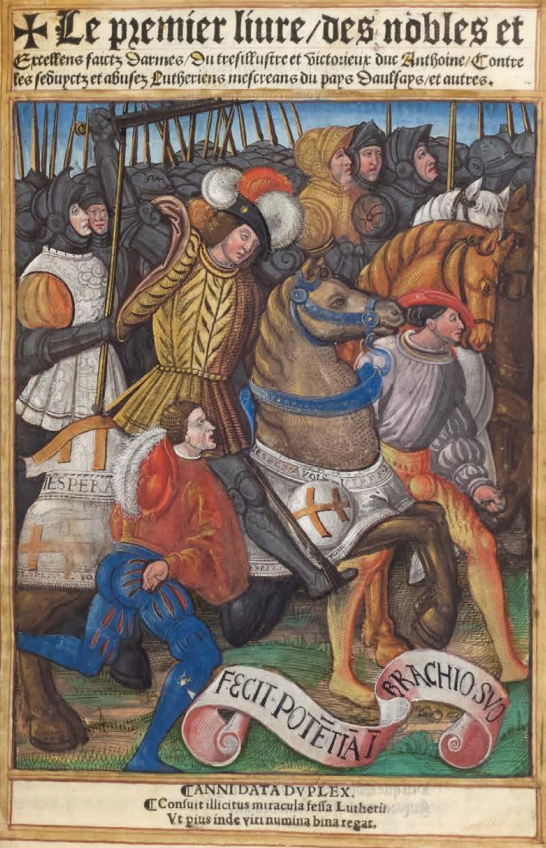 ✠ Le premier liure/des nobles et
Excellens faictz Darmes/Du tresillustre et victorieux duc Anthoine/Contre
les seduyctz et abusez Lutheriens mescreans du pays Daulsays/et autres.
IESPERA
IESPERE AVOIR
FECIT·POTĒTIĀ Ī
BRACHIO·SVO
⸿ANNI DATA DVPLEX.
⸿Consuit illicitus miracula fessa Lutheri:
Vt pius inde viri numina bina regat.